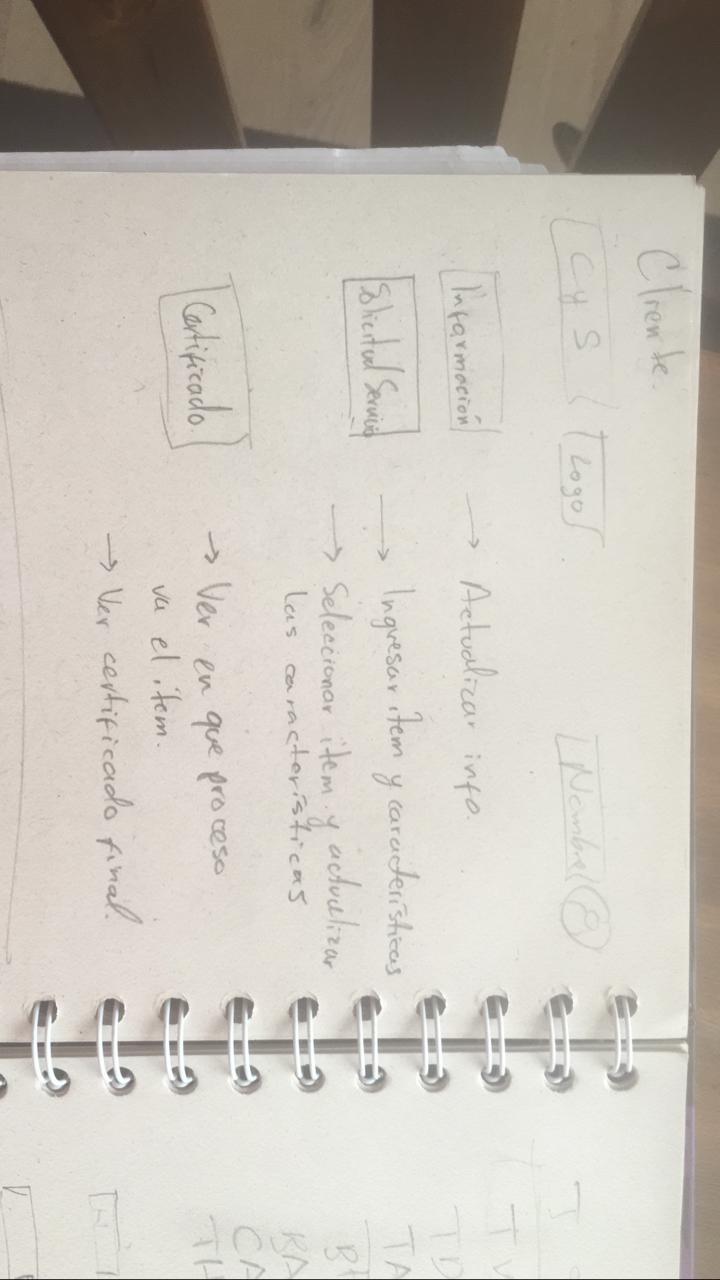 Cliente.
CyS Logo Nombre
Información → Actualizar info.
Solicitud Servicio → Ingresar item y características
→ Seleccionar item y actualizar
las características
Certificado. → Ver en que proceso
va el item.
→ Ver certificado final.
T
TV
TD
TA
B
BA
CA
TH